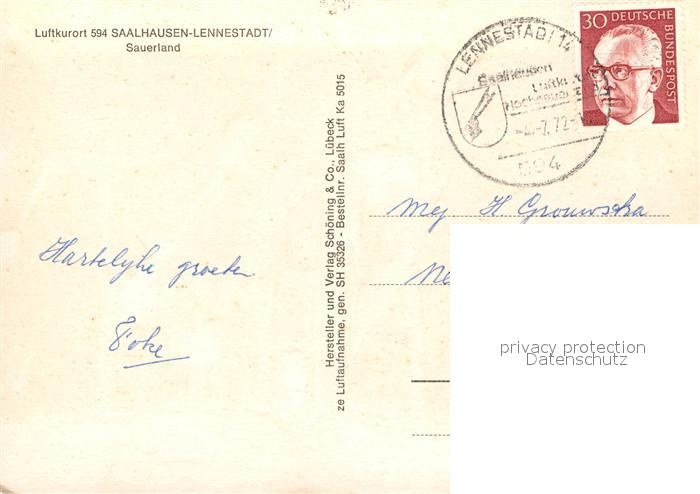 Luftkurort 594 SAALHAUSEN-LENNESTADT/
Sauerland
Hartelyke groeten
Foke
Hersteller und Verlag Schöning & Co., Lübeck
ze Luftaufnahme, gen. SH 35326 - Bestellnr. Saalh Luft Ka 5015
LENNESTADT 14
Saalhausen
Luftkurort
-4.-7.72-
594
30 DEUTSCHE
BUNDESPOST
Mej H
privacy protection
Datenschutz